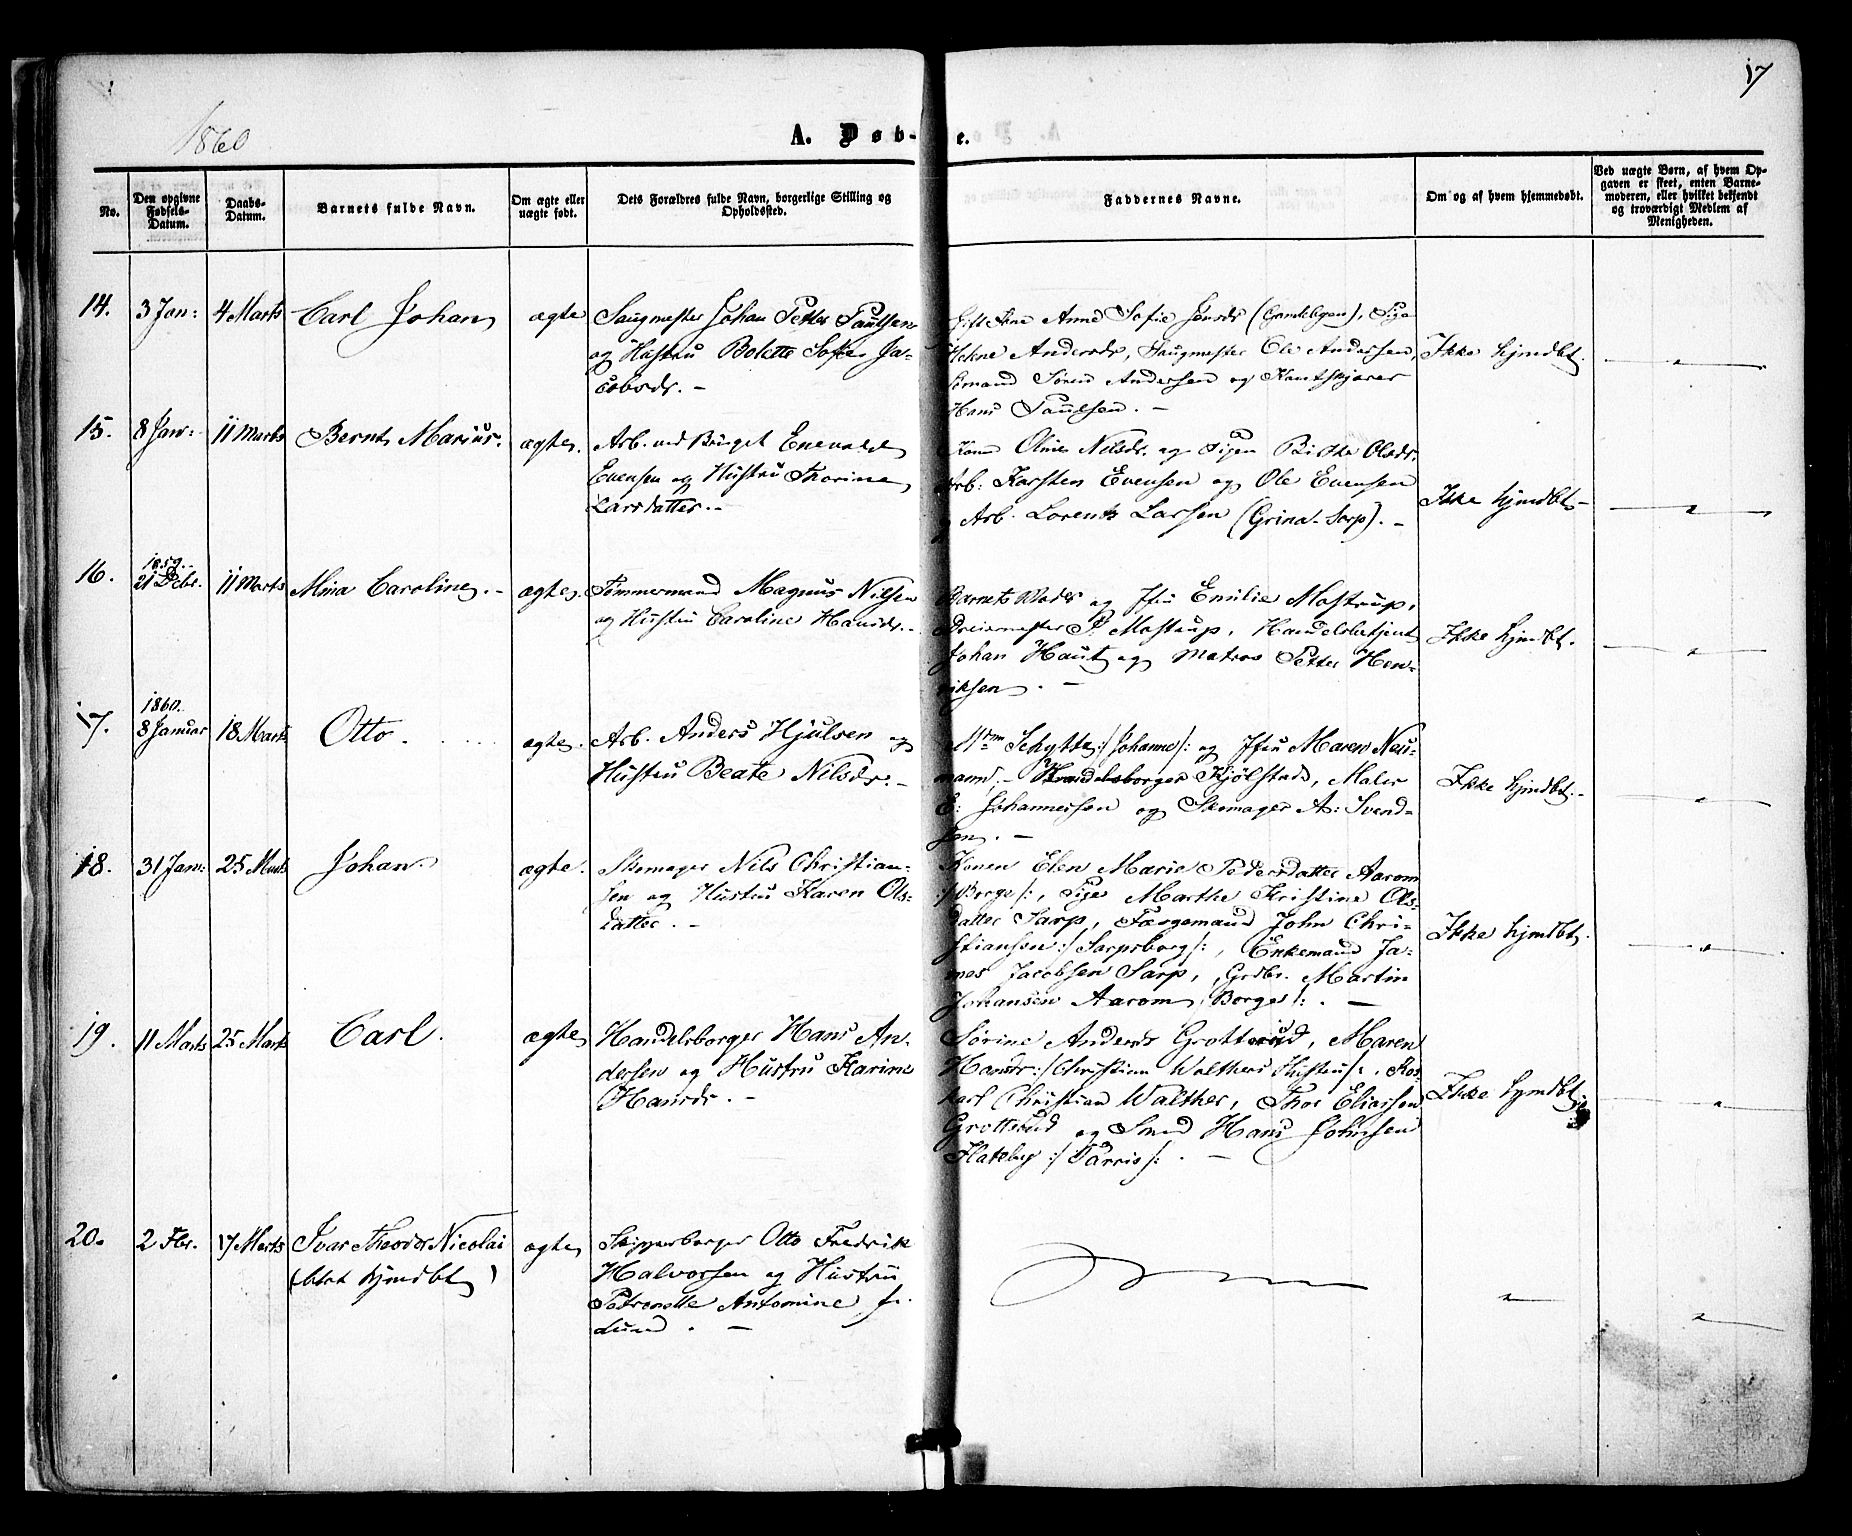 17
1860
A. Døb-e.
No.
Den opgivne
Fødsels-
Datum.
Daabs-
Datum.
Barnets fulde Navn.
Om ægte eller
uægte født.
Dets Forældres fulde Navn, borgerlige Stilling og
Opholdssted.
Faddernes Navne.
Om og af hvem hjemmedøbt.
Ved uægte Børn, af hvem Op-
gaven er skeet, enten Barne-
moderen, eller hvilket bekjendt
og troværdigt Medlem af
Menigheden.
14.
3 Jan:
4 Marts
Carl Johan
ægte
Saugmester Johan Petter Paulsen
og Hustru Bolette Sofie Ja-
cobsdr. -
Gift Kone Anne Sofie Jensdr (Gamlebyen), Pige
Helene Andersdr, Saugmester Ole Andersen,
Sømand Søren Andersen og Kantskjærer
Hans Paulsen. -
Ikke hjmdbt.
15.
8 Jan:
11 Marts
Bernt Marius.
ægte.
Arb. ved Bruget Enevald
Evensen og Hustru Thorine
Larsdatter. -
Kone Oline Nilsdr. og Pigen Birthe Olsdr,
Arb: Karsten Evensen og Ole Evensen
Arb. Lorents Larsen (Grina-Sarp). -
Ikke hjmdbt -
16.
1859.
21 Debr.
11 Marts
Mina Caroline. -
ægte.
Tømmermand Magnus Nilsen
og Hustru Caroline Hansdr. -
Barnets Moder og Jfru Emilie Mostrup,
Dreiermester P. Mostrup, Handelsbetjent
Johan Haut og Matros Petter Hen-
riksen. -
Ikke hjmdbt.
17.
1860.
8 Januar
18 Marts
Otto.
ægte.
Arb. Anders Hjulsen og
Hustru Beate Nilsdr. -
Schytte :/Johanne/: og Jfru Maren Neu-
mann. - Handelsborger Kjølstad, Maler
E: Johannessen og Skomager A: Svend-
sen. -
Ikke hjmdbt. -
18.
31 Jan:
25 Marts
Johan.
ægte.
Skomager Nils Christian-
sen og Hustru Karen Ols-
datter. -
Konen Elen Marie Pedersdatter Aarom
:/Borge/:, Pige Marthe Kristine Ols-
datter Sarp, Færgemand John Chri-
stiansen :/Sarpsborg/:, Enkemand Ja-
mes Jacobsen Sarp, Grdbr. Martin
Johansen Aarom /Borge/:. -
Ikke hjmdbt.
19.
11 Marts
25 Marts
Carl.
ægte
Handelsborger Hans An-
dersen og Hustru Karine
Hansdr. -
Sørine Andersdr Grotterud, Maren
Hansdr :/Christian Walthers Hustru/:,
Christian Walther, Thor Eliassen
Grotterud og Smed Hans Johnsen
Flateby :/Parris/:. -
Ikke hjmdbt.
20.
2 Fbr.
17 Marts
Ivar Theodor Nicolai
(blot hjmdbt)
ægte
Skipperborger Otto Fredrik
Halvorsen og Hustru
Petronelle Antomine f.
Lund. -